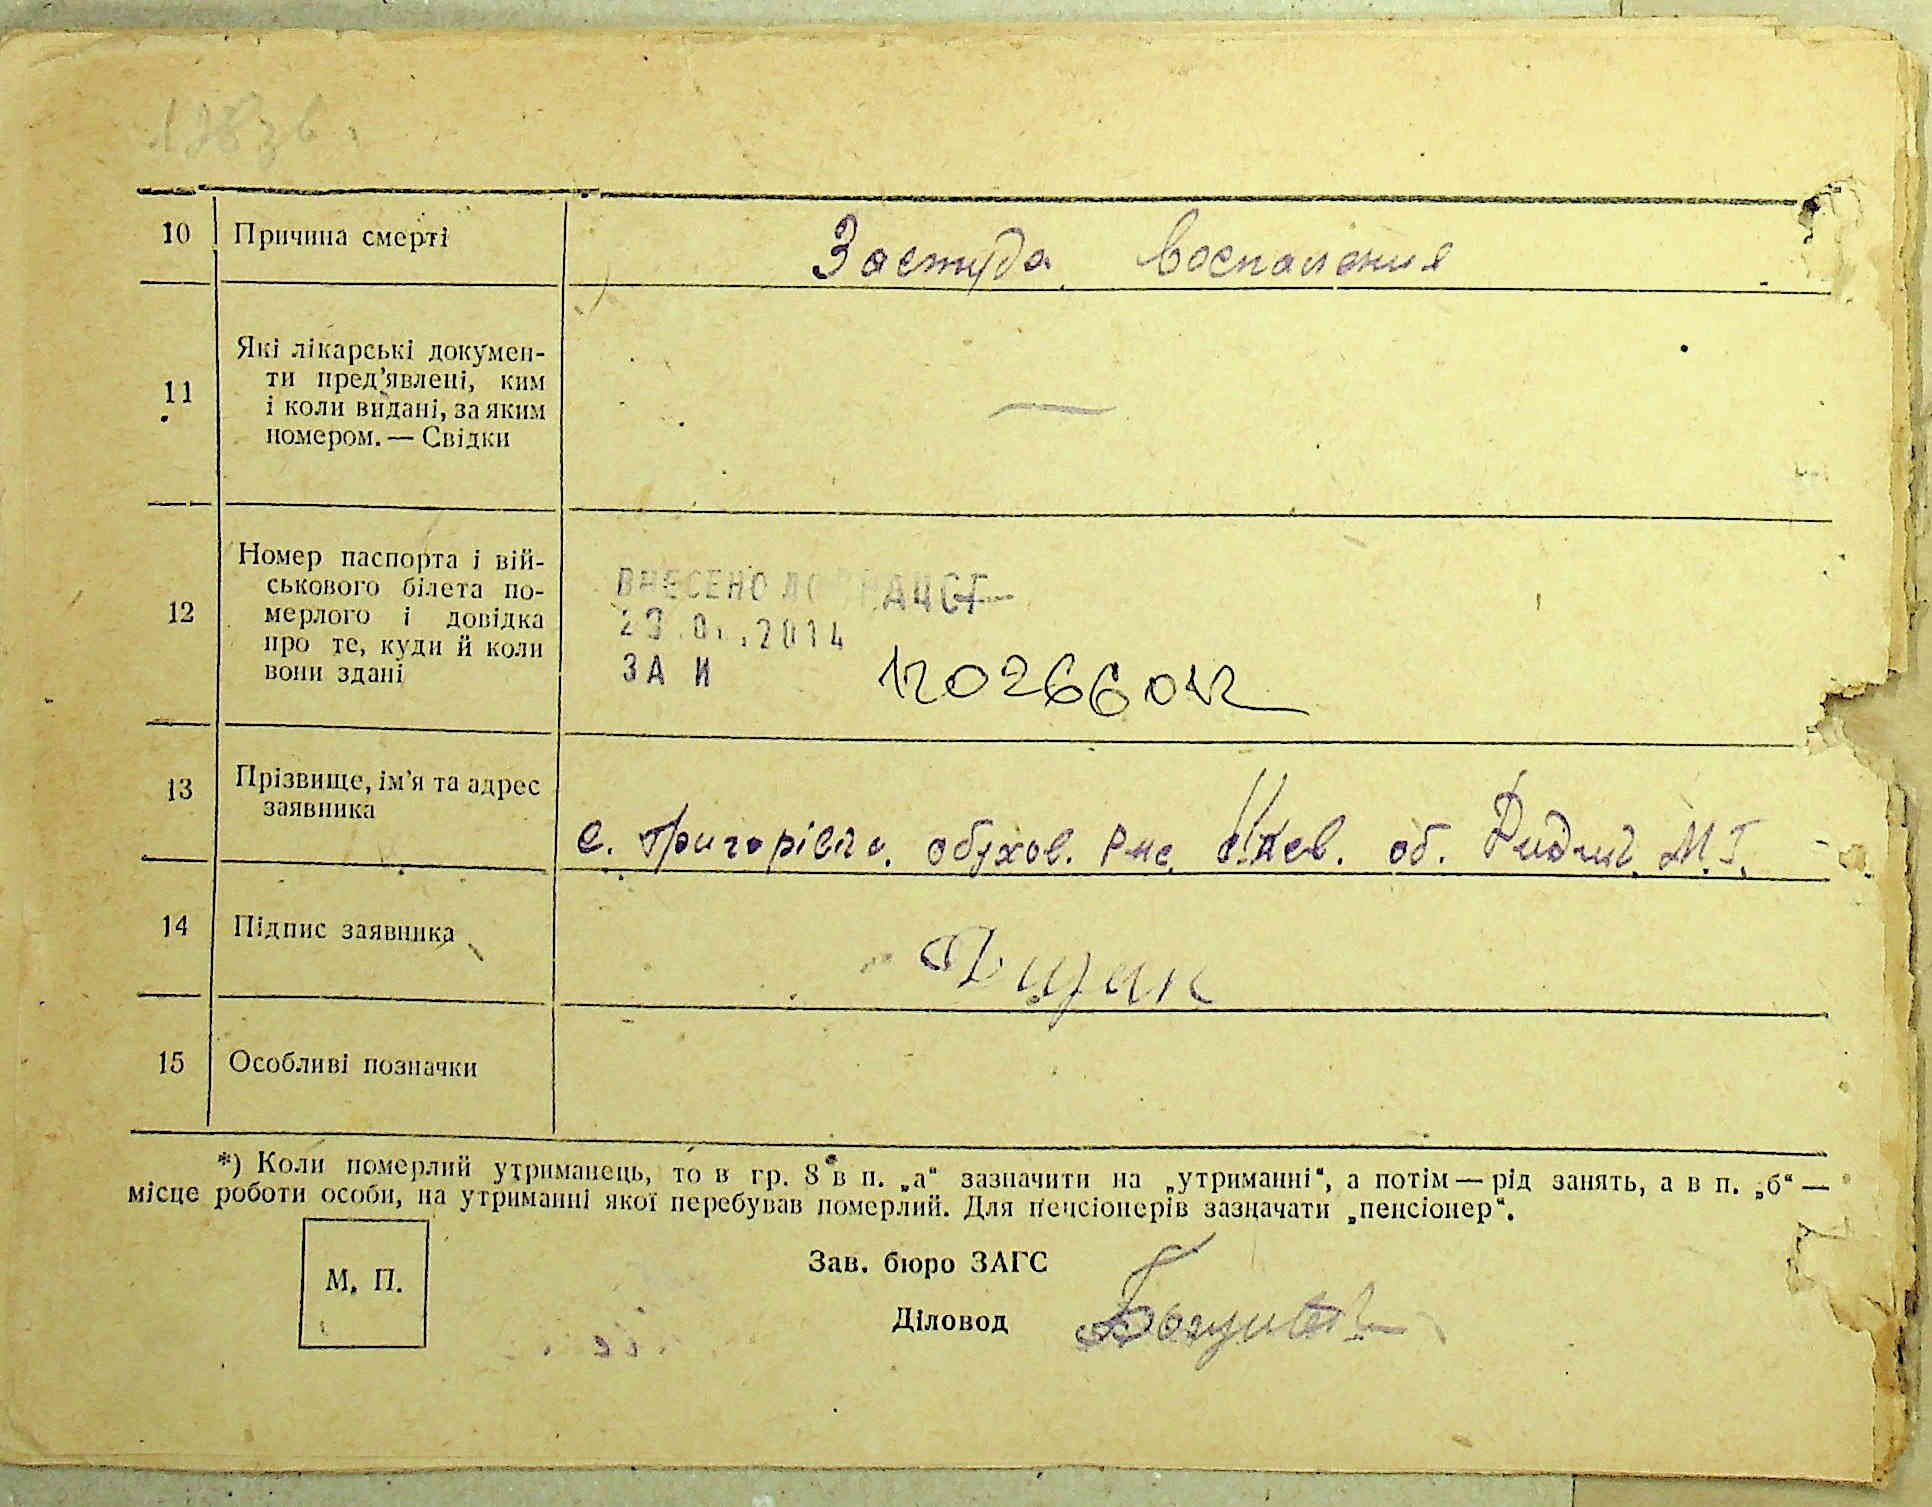 10 Причина смерті Застуда воспаления
11 Які лікарські докумен-
ти пред'явлені, ким
і коли видані, за яким
номером. — Свідки —
12 Номер паспорта і вій-
ськового білета по-
мерлого і довідка
про те, куди й коли
вони здані
ВНЕСЕНО ДО
2014
ЗА И 120266012
13 Прізвище, ім'я та адрес
заявника
с. Григорівка. обухов. Киев. об. М. Г.
14 Підпис заявника
15 Особливі позначки
*) Коли померлий утриманець, то в гр. 8 в п. „а“ зазначити на „утриманні“, а потім — рід занять, а в п. „б“ —
місце роботи особи, на утриманні якої перебував померлий. Для пенсіонерів зазначати „пенсіонер“.
М. П.
Зав. бюро ЗАГС
Діловод